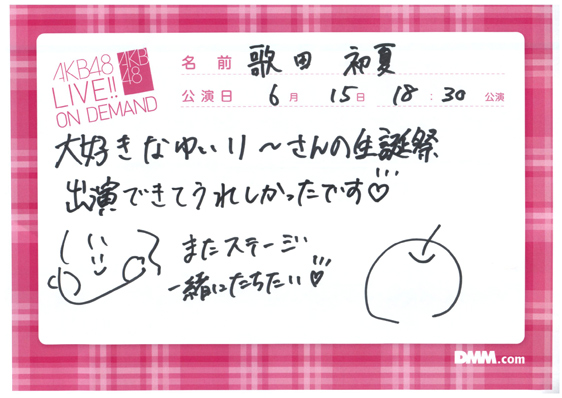 AKB48
LIVE!!
ON DEMAND
AKB
48
名前 歌田 初夏
公演日 6月 15日 18:30 公演
大好きなゆいり〜さんの生誕祭
出演できてうれしかったです♡
またステージ
一緒にたちたい♡
DMM.com